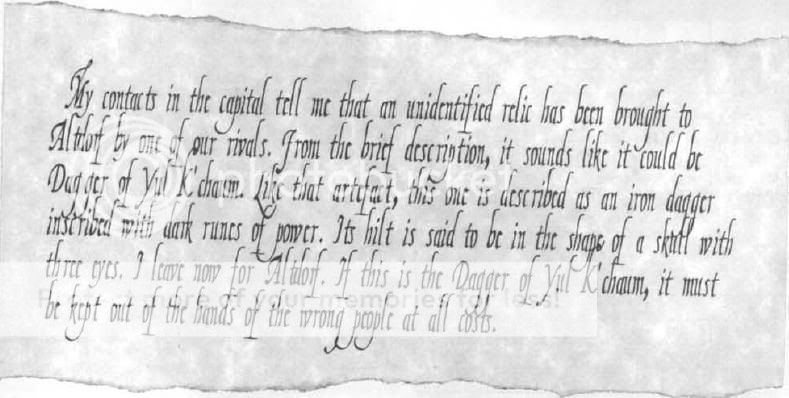 My contacts in the capital tell me that an unidentified relic has been brought to
Altdorf by one of our rivals. From the brief description, it sounds like it could be
Dagger of Yul K'chaum. Like that artefact, this one is described as an iron dagger
photobucket
inscribed with dark runes of power. Its hilt is said to be in the shape of a skull with
three eyes. I leave now for Altdorf. If this is the Dagger of Yul K'chaum, it must
more of your memories for less!
be kept out of the hands of the wrong people at all costs.